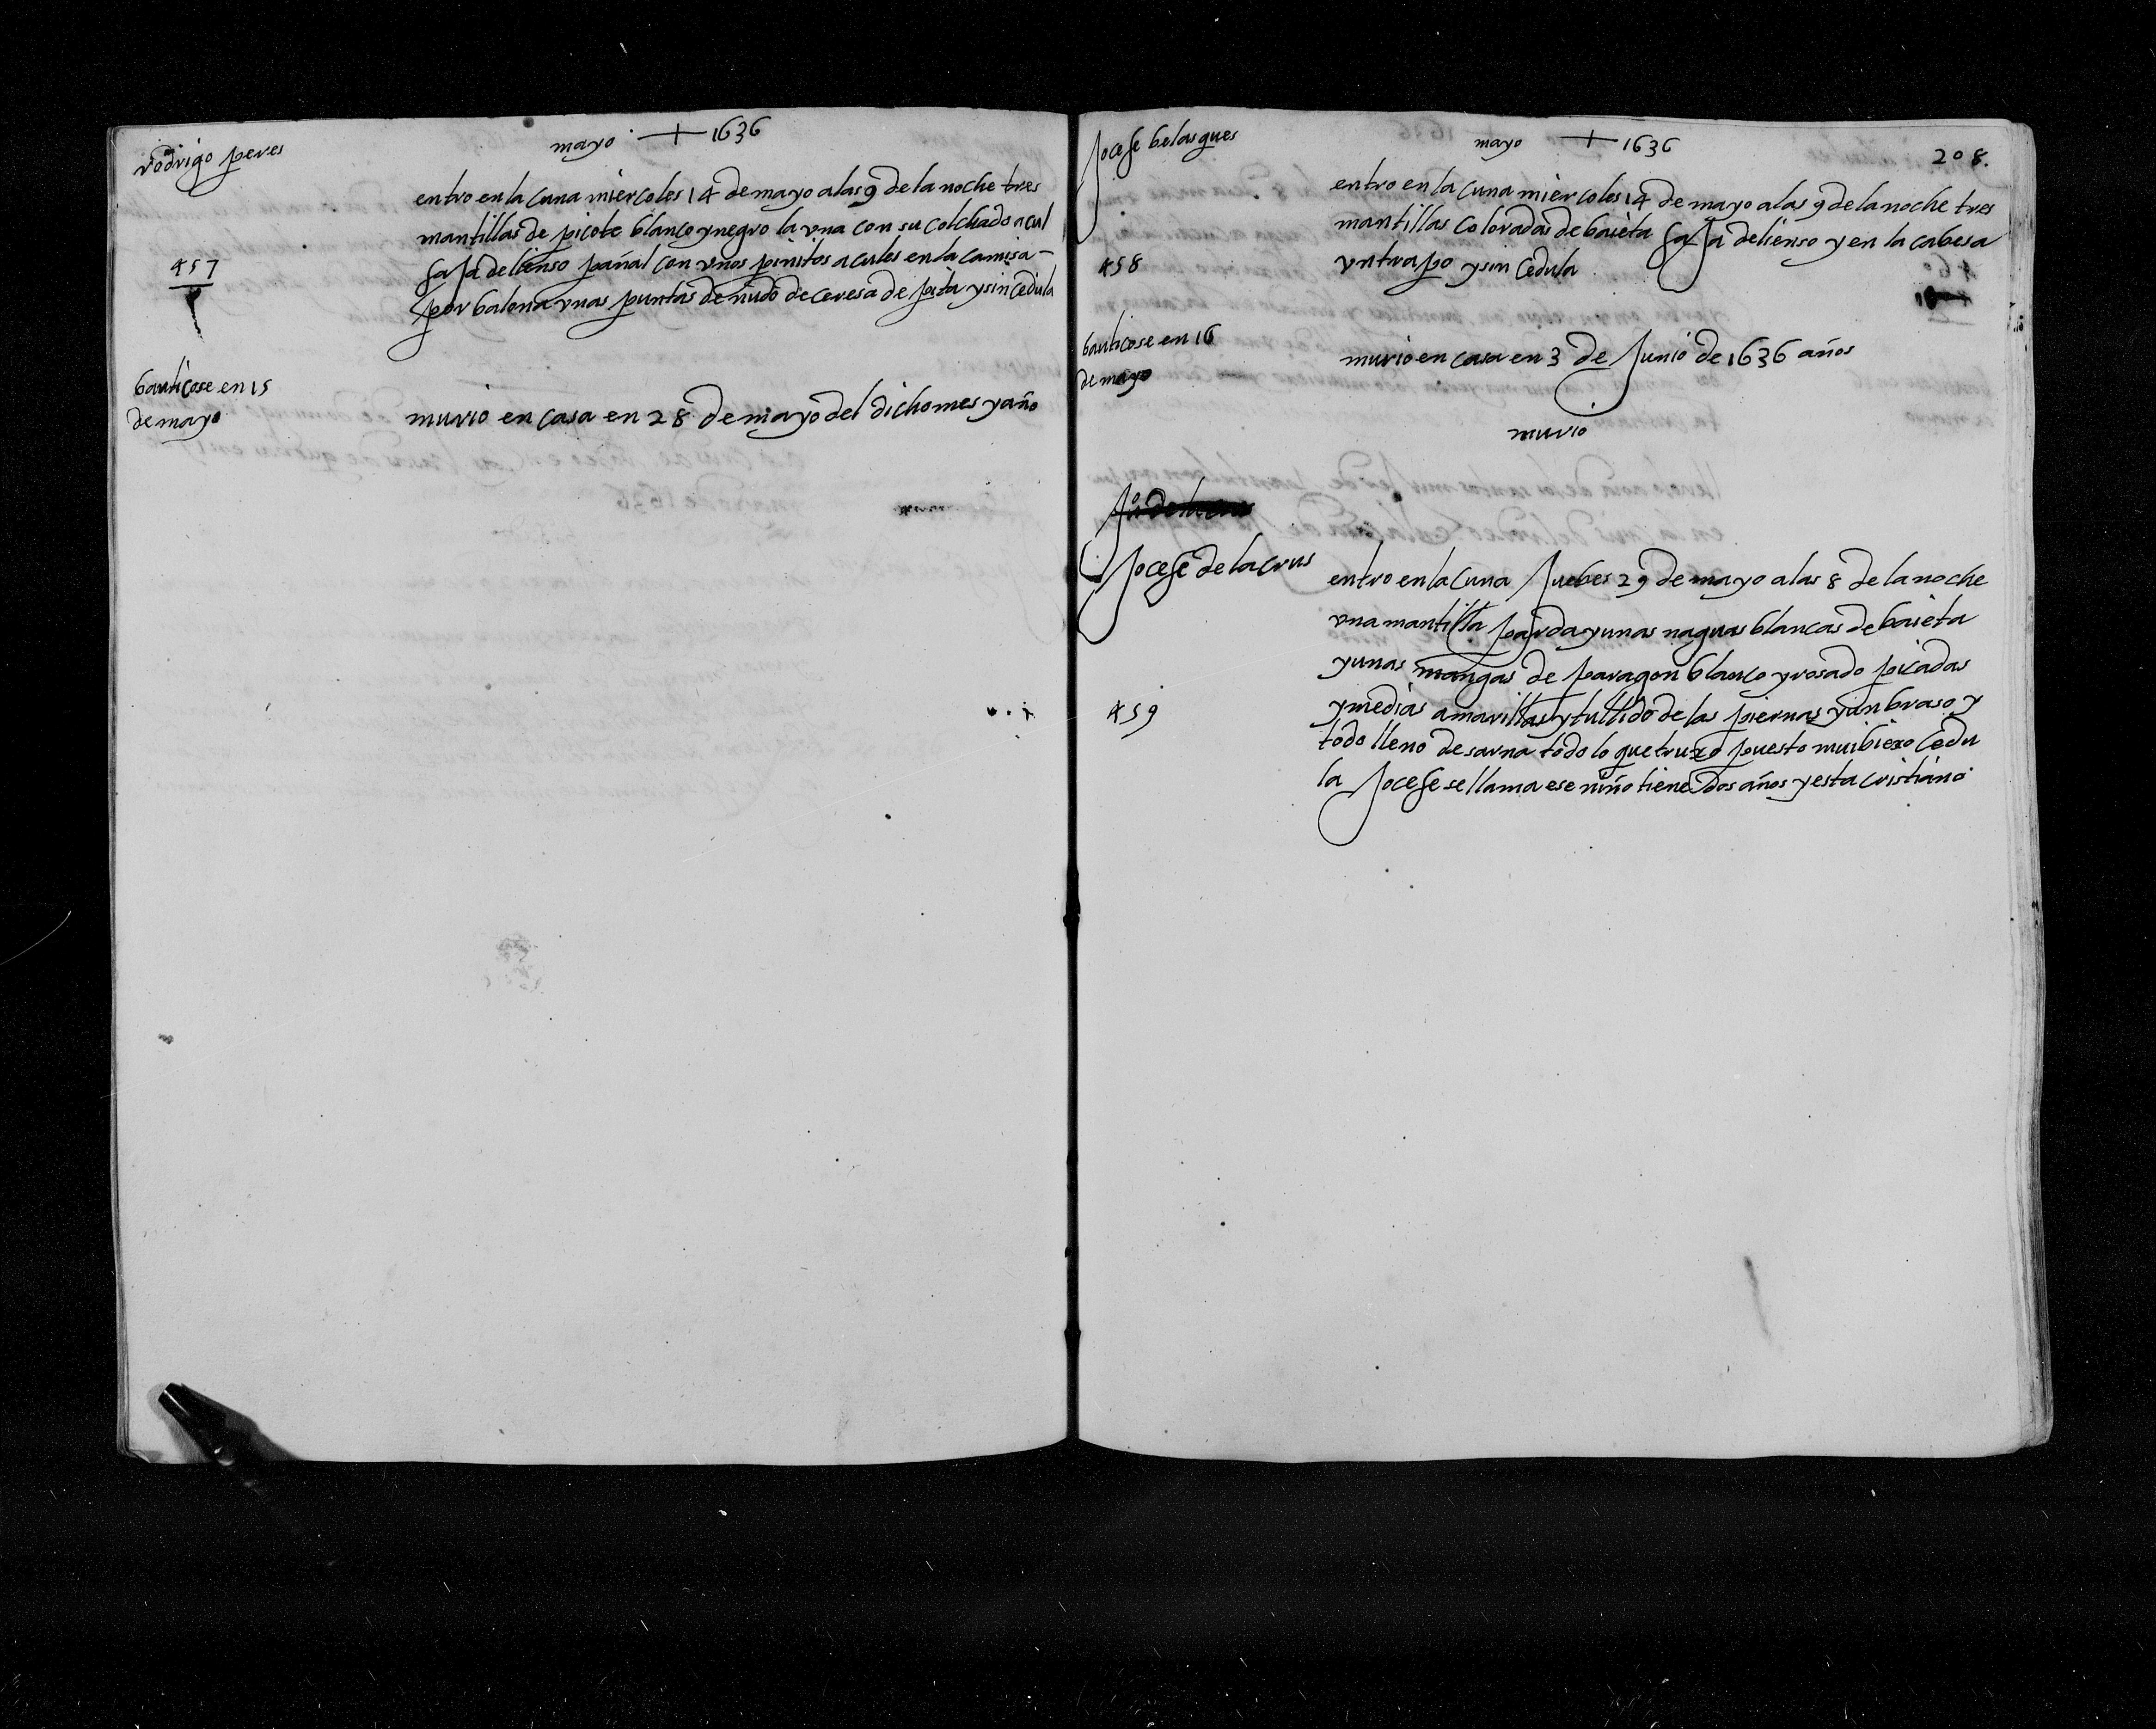 mayo + 1636
rodrigo peres
entro en la cuna miercoles 14 de mayo a las 9 de la noche tres
mantillas de picote blanco y negro la vna con su colchado açul
faja de lienso pañal con vnos pinitos açules en la camisa -
por balona vnas puntas de nudo de ceresa de pita y sin cedula
457
bautiçose en 15
de mayo
murio en casa en 28 de mayo del dicho mes y año
mayo + 1636
208.
Jocefe belasques
entro en la cuna miercoles 14 de mayo a las 9 de la noche tres
mantillas coloradas de baieta faja de lienso y en la cabesa
vn trapo y sin cedula
458
bautiçose en 16
de mayo
murio en casa en 3 de Junio de 1636 años
murio
Jocefe de la crus
entro en la cuna Juebes 29 de mayo a las 8 de la noche
vna mantilla parda y unas naguas blancas de baieta
y unas mangas de paragon blanco y rosado picadas
y medias amarillas y tullido de las piernas y un braso y
todo lleno de sarna todo lo que truxo puesto mui biexo cedu
la Jocefe se llama ese niño tiene dos años y esta cristiano
459